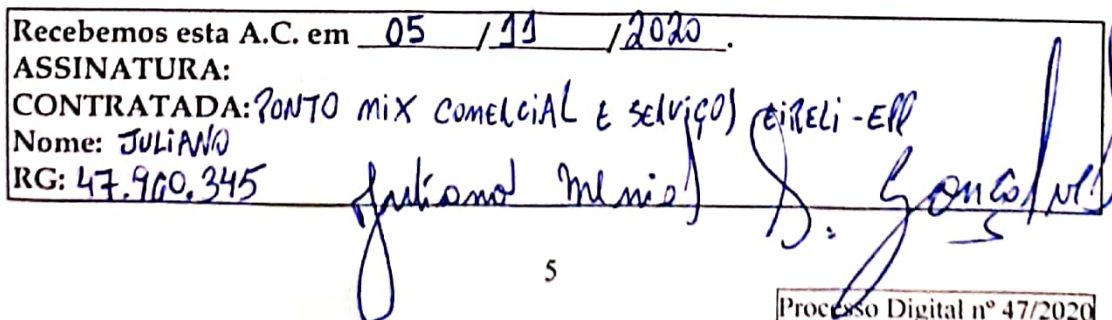 Recebemos esta A.C. em 05 / 11 / 2020.
ASSINATURA:
CONTRATADA: PONTO MIX COMERCIAL E SERVIÇOS EIRELI - EPP
Nome: JULIANO
RG: 47.960.345
Juliano D. Gonçalves
5
Processo Digital nº 47/2020